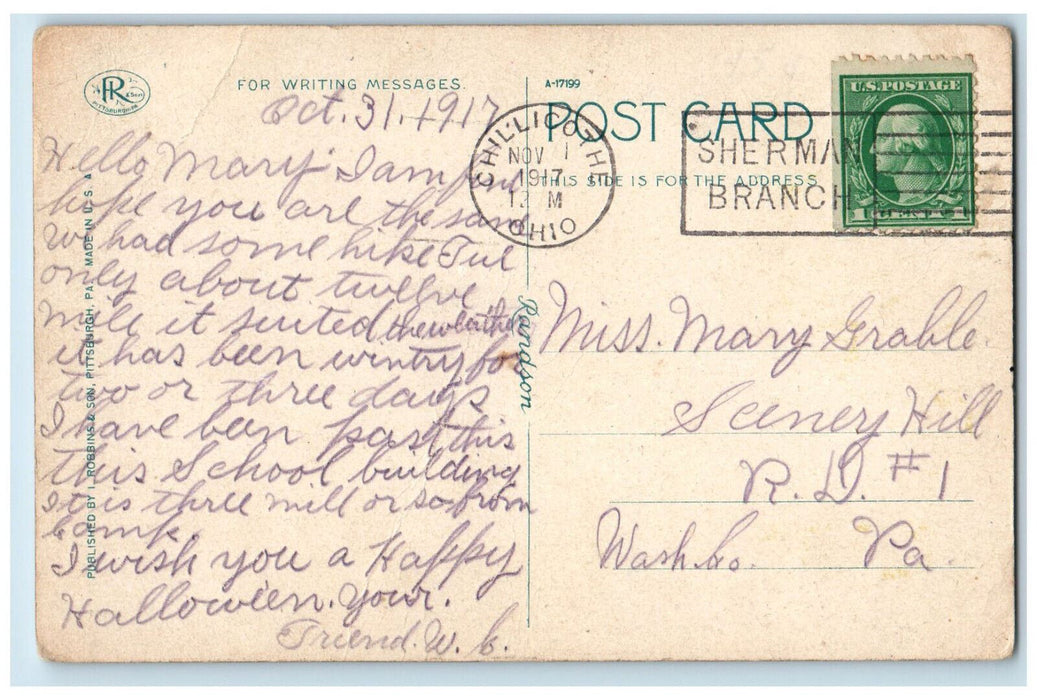 FOR WRITING MESSAGES.
Oct. 31. 1917
Hello Mary. I am fine
hope you are the same
We had some hike Tue
only about twelve
mile it suited the weather
it has been wintry for
two or three days
I have been past this
this School building
It is three mill or so from
camp.
I wish you a Happy
Halloween. your.
Friend. W. C.
PUBLISHED BY I. ROBBINS & SON, PITTSBURGH, PA. MADE IN U. S. A.
IR
& Son
PITTSBURGH PA
A-17199
POST CARD
THIS SIDE IS FOR THE ADDRESS
CHILLICOTHE
NOV 1
1917
12 M
OHIO
SHERMAN
BRANCH
U.S. POSTAGE
1 CENT 1
Randson
Miss. Mary Grable.
Scenery Hill
R. D. #1
Wash. Co. Pa.